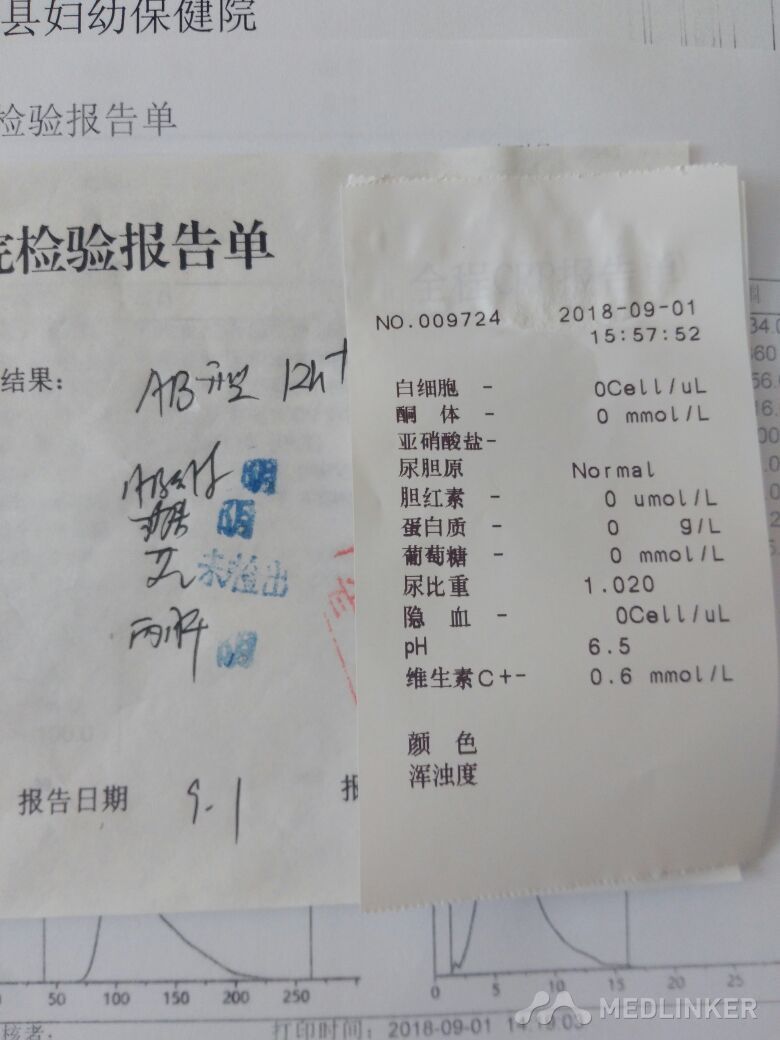 县妇幼保健院
检验报告单
院检验报告单
结果:
AB型 Rh+
阴
阴
未检出
丙肝 阴
报告日期 9.1 报
NO.009724 2018-09-01
15:57:52
白细胞 - 0Cell/uL
酮 体 - 0 mmol/L
亚硝酸盐-
尿胆原 Normal
胆红素 - 0 umol/L
蛋白质 - 0 g/L
葡萄糖 - 0 mmol/L
尿比重 1.020
隐 血 - 0Cell/uL
pH 6.5
维生素C+- 0.6 mmol/L
颜 色
浑浊度
50 100 150 200 250
0 5 10 15 20 25
核者:
打印时间: 2018-09-01
MEDLINKER